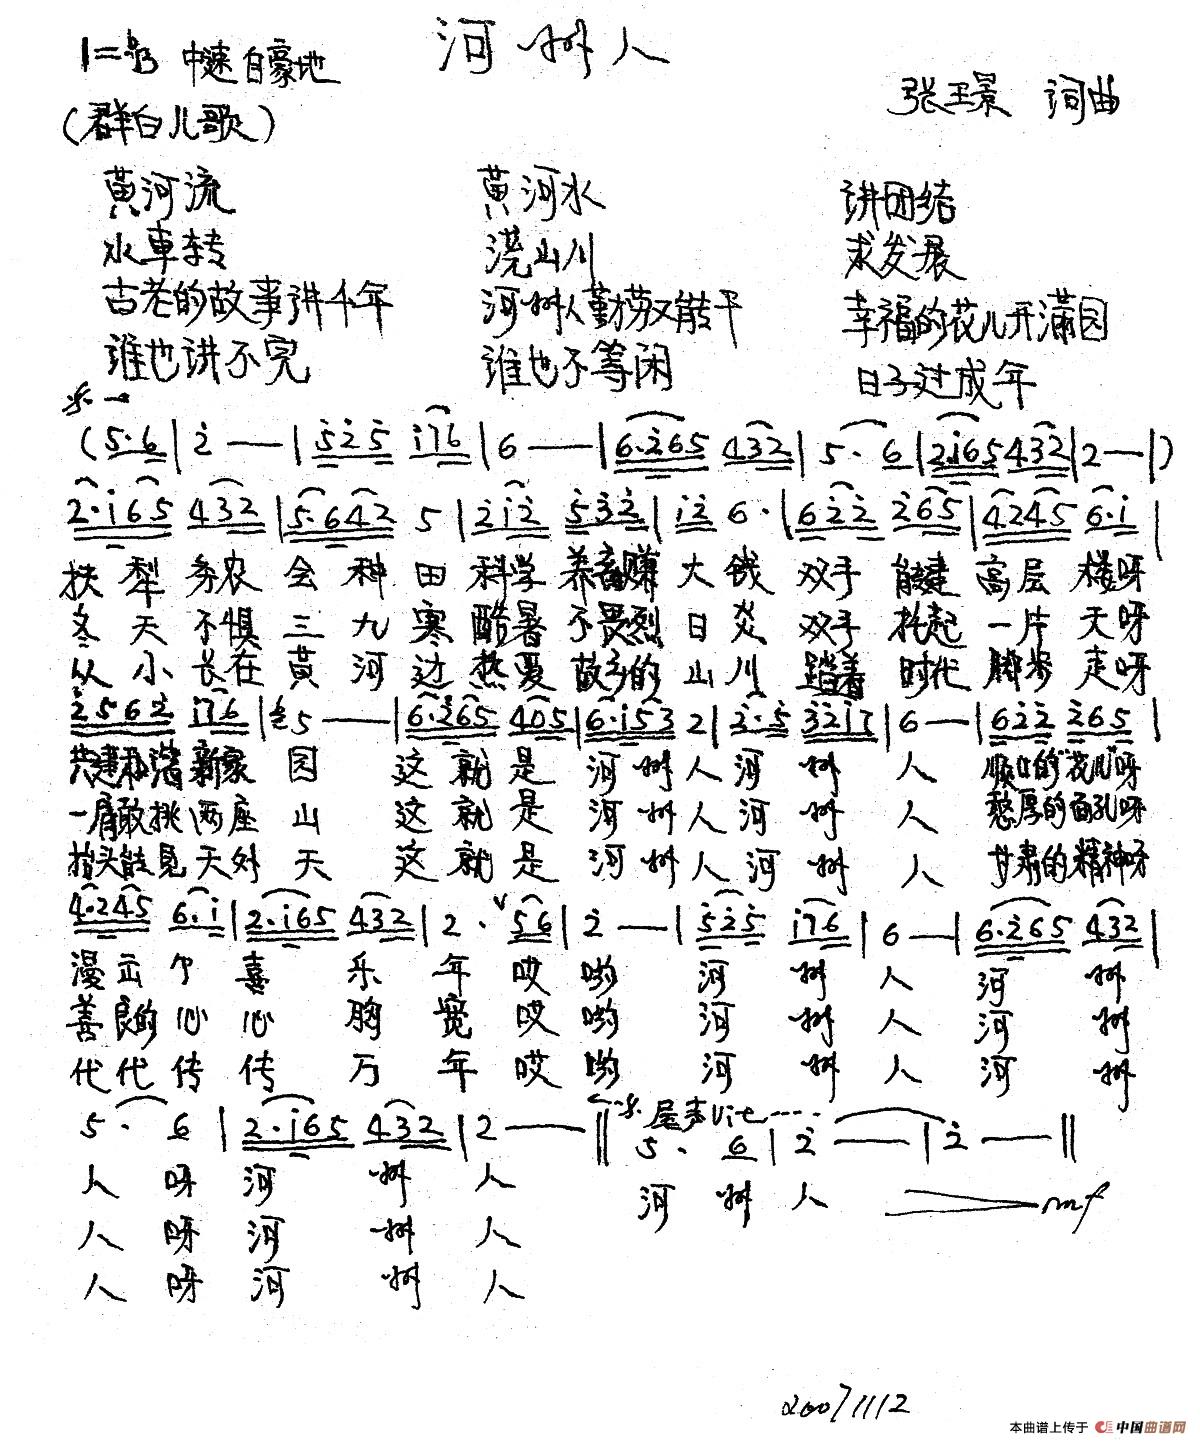 河州人
1=♭B 中速 自豪地
张玉景 词曲
(群白儿歌)
黄河流 黄河水 讲团结
水車转 浇山川 求发展
古老的故事讲千年 河州人勤劳又能干 幸福的花儿开满园
谁也讲不完 谁也不等闲 日子过成年
(5·6|2̇ —|5̇2̇5̇ i76|6 —|6·2̇65 432|5· 6|2·i65 432|2—|)
2·i65 432|5·642 5|2̇i2̇ 5̇3̇2̇|i2̇ 6·|62̇2̇ 2̇65|4245 6·i|
扶犁务农会种田科学养畜赚大钱双手能建高层楼呀
冬天不惧三九寒酷暑不畏烈日炎双手托起一片天呀
从小长在黄河边热爱故乡的山川踏着时代脚步走呀
2̇562̇ i76|5 —|6·2̇65 405|6·i53 2|2̇·5̇ 3̇2̇i7|6 —|62̇2̇ 2̇65|
共建和谐新家园这就是河州人河州人顺口的“花儿”呀
一肩敢挑两座山这就是河州人河州人憨厚的面孔呀
抬头能见天外天这就是河州人河州人甘肃的精神呀
4·245 6·i|2·i65 432|2· ∨56|2̇ —|5̇2̇5̇ i76|6—|6·2̇65 432|
漫出个喜乐年哎哟河州人河州
善良的心心胸宽哎哟河州人河州
代代传传万年哎哟河州人河州
5· 6|2·i65 432|2 —‖ 尾声 5· 6|2̇ —|2̇ —‖
人呀河州人 河州人 mf
人呀河州人
人呀河州人
20071112
本曲谱上传于 中国曲谱网